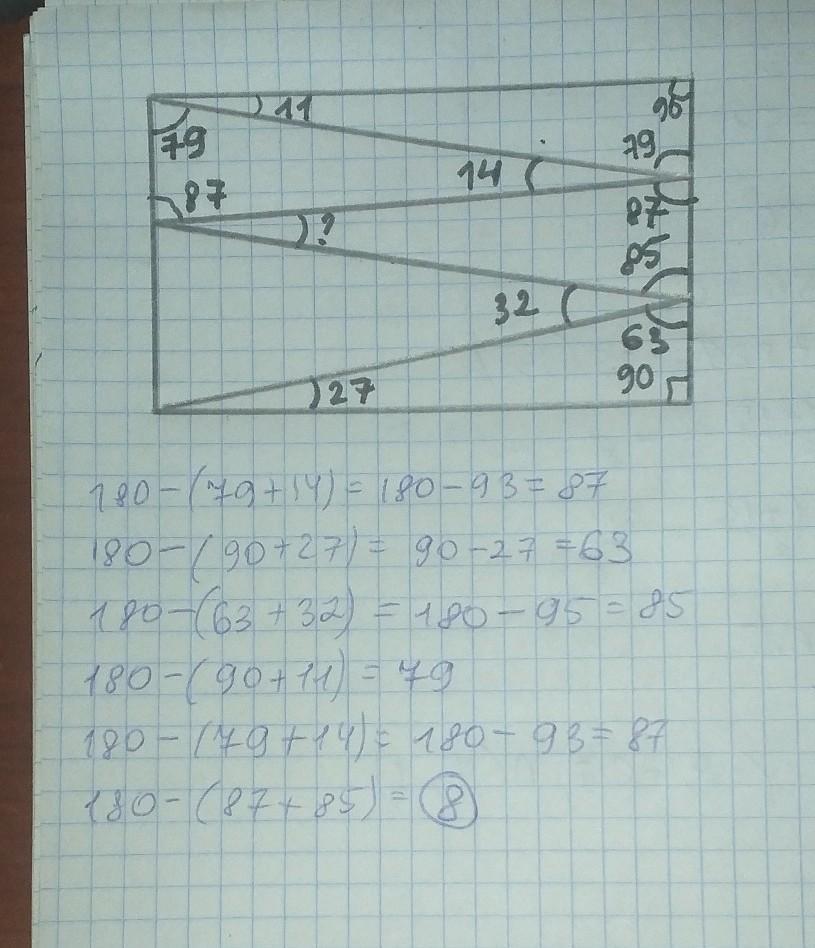 11
90
79
79
14
87
87
?
85
32
63
90
27
180-(79+14)=180-93=87
180-(90+27)=90-27=63
180-(63+32)=180-95=85
180-(90+11)=79
180-(79+14)=180-93=87
180-(87+85)=8